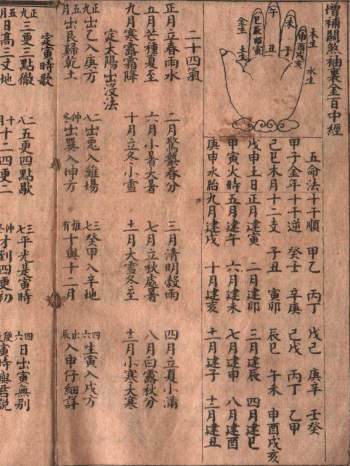 增補關煞袖裏金百中經
五命法十干順 甲乙 丙丁 戊己 庚辛 壬癸
甲子金年十干逆 癸壬 辛庚 己戊 丙丁 乙甲
己巳木月十二支 子丑 寅卯 辰巳 午未 申酉戌亥
戊申土日正月建寅 二月建卯 三月建辰 四月建巳
甲寅火時五月建午 六月建未 七月建申 八月建酉
庚申水胎九月建戌 十月建亥 十一月建子 十二月建丑
木生
水生
金生
午
未
申酉戌亥
子
丑
二十四氣
正月立春雨水 二月驚蟄春分 三月清明穀雨 四月立夏小滿
五月芒種夏至 六月小暑大暑 七月立秋處暑 八月白露秋分
九月寒露霜降 十月立冬小雪 十一月大雪冬至 十二月小寒大寒
定太陽出沒法
正九出乙入庚方 二八出兔入雞場 三七癸甲入辛地 四六生寅入戌方
五月出艮歸乾上 仲冬出巽入坤方 惟有十與十二月 出辰入申仔細詳
定寅時歌
正九三更三點徹 二八五更四點歇 三七平光是寅時 四六日出寅無別
月日高三丈地 月十二四更二 冬才到四更初 寅時與君說